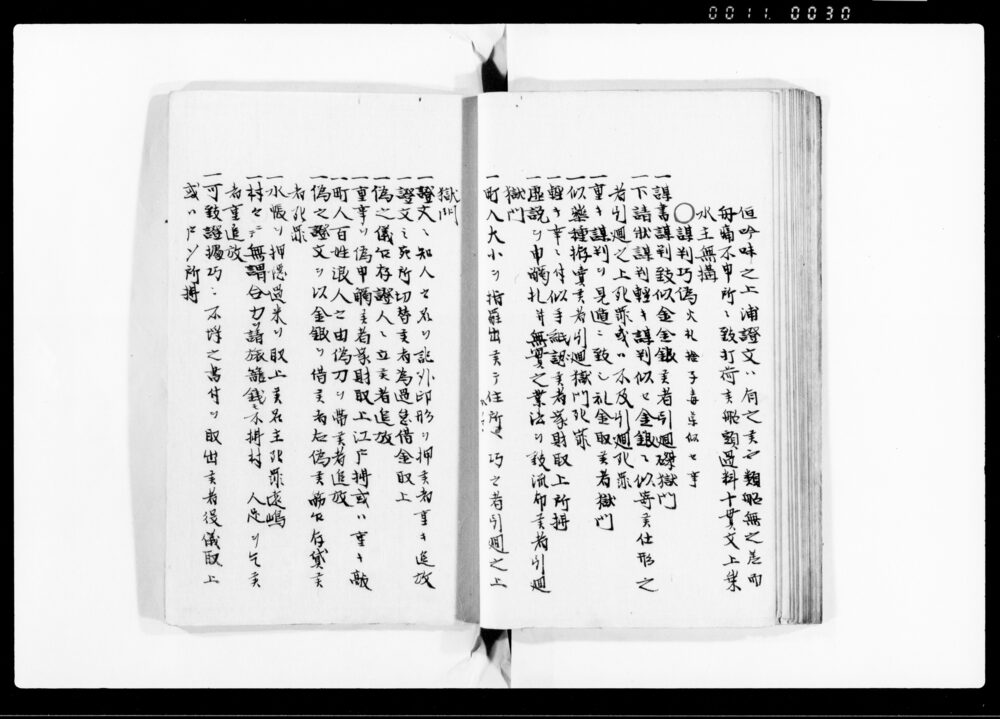 0011.0030
但吟味之上浦證文ハ有之候而も類船無之荒雨
毎痛不申所へ致打荷候船頭過料十貫文上乗
水主無搆
〇謀判巧偽火札捨子毒薬似セ事
一謀書謀判致似金金銀候者引廻磔獄門
一下請状謀判軽キ謀判似セ金銀ニ似寄候仕形之
者引廻之上死罪或ハ不及引廻死罪
一重キ謀判ヲ見遁ニ致シ礼金取候者獄門
一似薬種拵賣候者引廻獄門死罪
一軽キ事ニ付似手紙認候者家財取上所拂
一虚説ヲ申觸札并無實之業法ヲ致流布候者引廻
獄門
一町人大小ヲ指罷出候テ住所 巧之者引廻之上
獄門
一證文ニ知人セ名ヲ認外印形ヲ押候者重キ追放
一證文之宛所切替候者為過怠借金取上
一偽之儀乍存證人ニ立候者追放
一重事ヲ偽申觸候者家財取上江戸拂或ハ重キ敲
一町人百姓浪人ト由偽刀ヲ帯候者追放
一偽之證文ヲ以金銀ヲ借候者右偽候而乍存貸候
者死罪
一水帳ヲ押隠過米ヲ取上候名主死罪遠嶋
一村々ニテ無謂合力ヲ請旅籠錢不拂村 人足ヲ乞候
者重追放
一可致證據巧ニ不埒之書付ヲ取出候者役儀取上
或ハ戸〆所拂